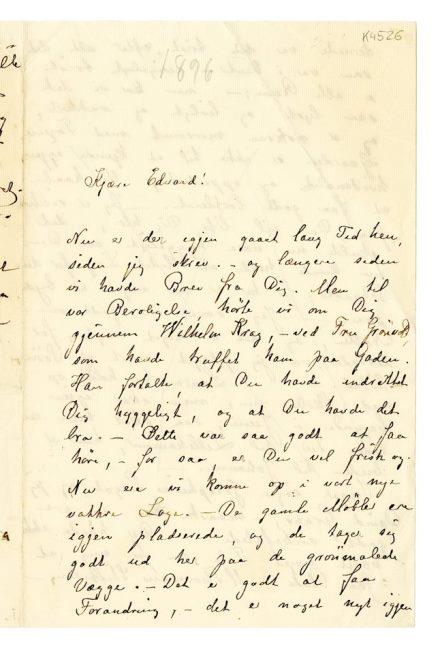 K4526
1896
Kjære Edvard!
Nu er der igjen gaaet lang Tid hen,
siden jeg skrev. – og længere siden
vi havde Brev fra Dig. Men til
vor Beroligelse, hørte vi om Dig
gjennem Wilhelm Krag, – ved Fru Grönvold,
som havde truffet ham paa Gaden.
Han fortalte, at Du havde indrettet
Dig hyggeligt, og at Du havde det
bra. – Dette var saa godt at faa
höre, – for saa, er Du vel frisk og.
Nu ere vi komne op i vort nye
vakkre Loge. – De gamle Möbler ere
igjen pladserede, og de tager sig
godt ud her paa de grönmalede
Vægge. – Det er godt at faa
Forandring, – det er noget nyt igjen